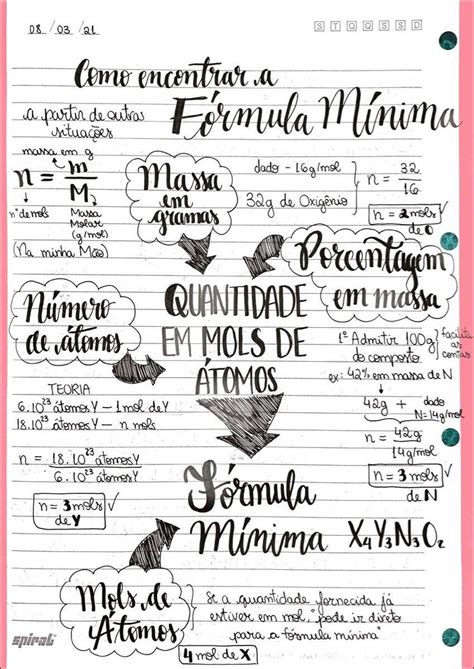 08/03/21
S T Q Q S S D
Como encontrar a
Fórmula Mínima
a partir de outras
situações
massa em g
n = m
M
nº de mols
Massa
Molar
(g/mol)
(Na minha Mão)
Massa
em
gramas
dado - 16g/mol
32g de Oxigênio
n = 32
16
n = 2 mols
de O
Porcentagem
em massa
1º Admitir 100g
do composto
facilita
as
contas
ex: 42% em massa de N
42g + dado
N=14g/mol
n = 42g
14g/mol
n = 3 mols
de N
Número
de átomos
QUANTIDADE
EM MOLS DE
ÁTOMOS
TEORIA
6.10²³ átomos Y — 1 mol de Y
18.10²³ átomos Y — n mols
n = 18.10²³ átomos Y
6.10²³ átomos Y
n = 3 mols
de Y
Fórmula
Mínima
X₄Y₃N₃O₂
Mols de
Átomos
Se a quantidade fornecida já
estiver em mol, "pode ir direto
para a fórmula mínima"
4 mol de X
spiral